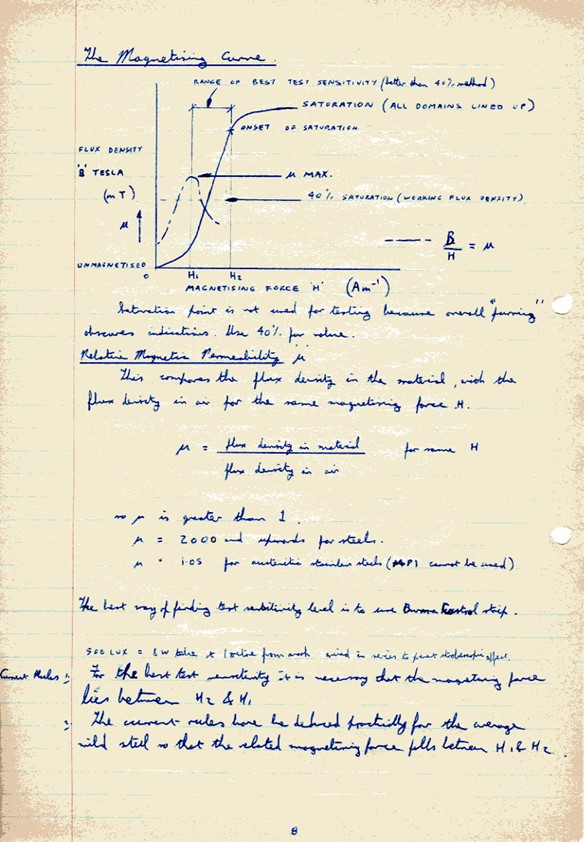 The Magnetising Curve.
RANGE OF BEST TEST SENSITIVITY (better than 40% method)
SATURATION (ALL DOMAINS LINED UP)
ONSET OF SATURATION
FLUX DENSITY
'B' TESLA
(mT)
μ MAX.
40% SATURATION (WORKING FLUX DENSITY)
μ
B/H = μ
UNMAGNETISED
0 H1 H2
MAGNETISING FORCE 'H' (Am⁻¹)
Saturation point is not used for testing because overall "furring"
obscures indications. Use 40% for value.
Relative Magnetic Permeability μ
This compares the flux density in the material, with the
flux density in air for the same magnetising force H.
μ = flux density in material for same H
flux density in air
so μ is greater than 1.
μ = 2000 and upwards for steels.
μ = 1.05 for austenitic stainless steels (MPI cannot be used)
The best way of finding test sensitivity level is to use Burma Castrol strip.
500 LUX = 8W tube at 1 from work wired in series to stroboscopic effect.
Current Rules :-
For the best test sensitivity it is necessary that the magnetising force
lies between H2 & H1
The current rules have be deduced practically for the average
mild steel so that the related magnetising force falls between H1 & H2
8